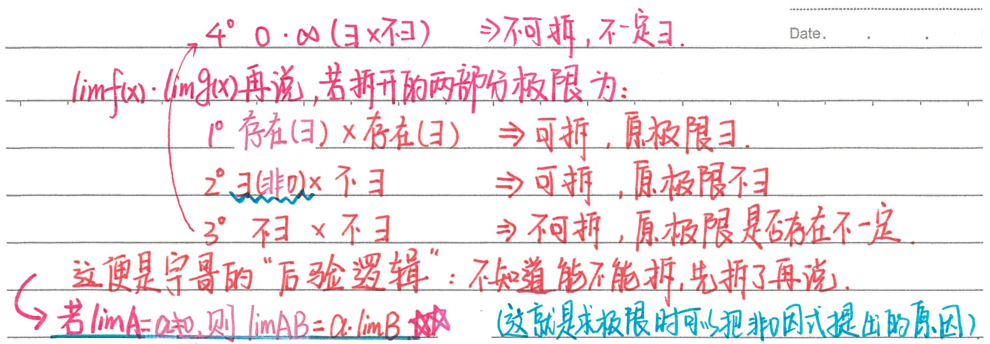 4° 0·∞(∃×不∃) ⇒不可拆,不一定∃. Date. . .
limf(x)·limg(x)再说,若拆开的两部分极限为:
1° 存在(∃)×存在(∃) ⇒可拆,原极限∃.
2° ∃(非0)× 不∃ ⇒可拆,原极限不∃
3° 不∃ × 不∃ ⇒不可拆,原极限是否存在不一定.
这便是宇哥的“后验逻辑”:不知道能不能拆,先拆了再说.
若limA=a≠0,则limAB=a·limB ☆☆ (这就是求极限时可以把非0因式提出的原因)